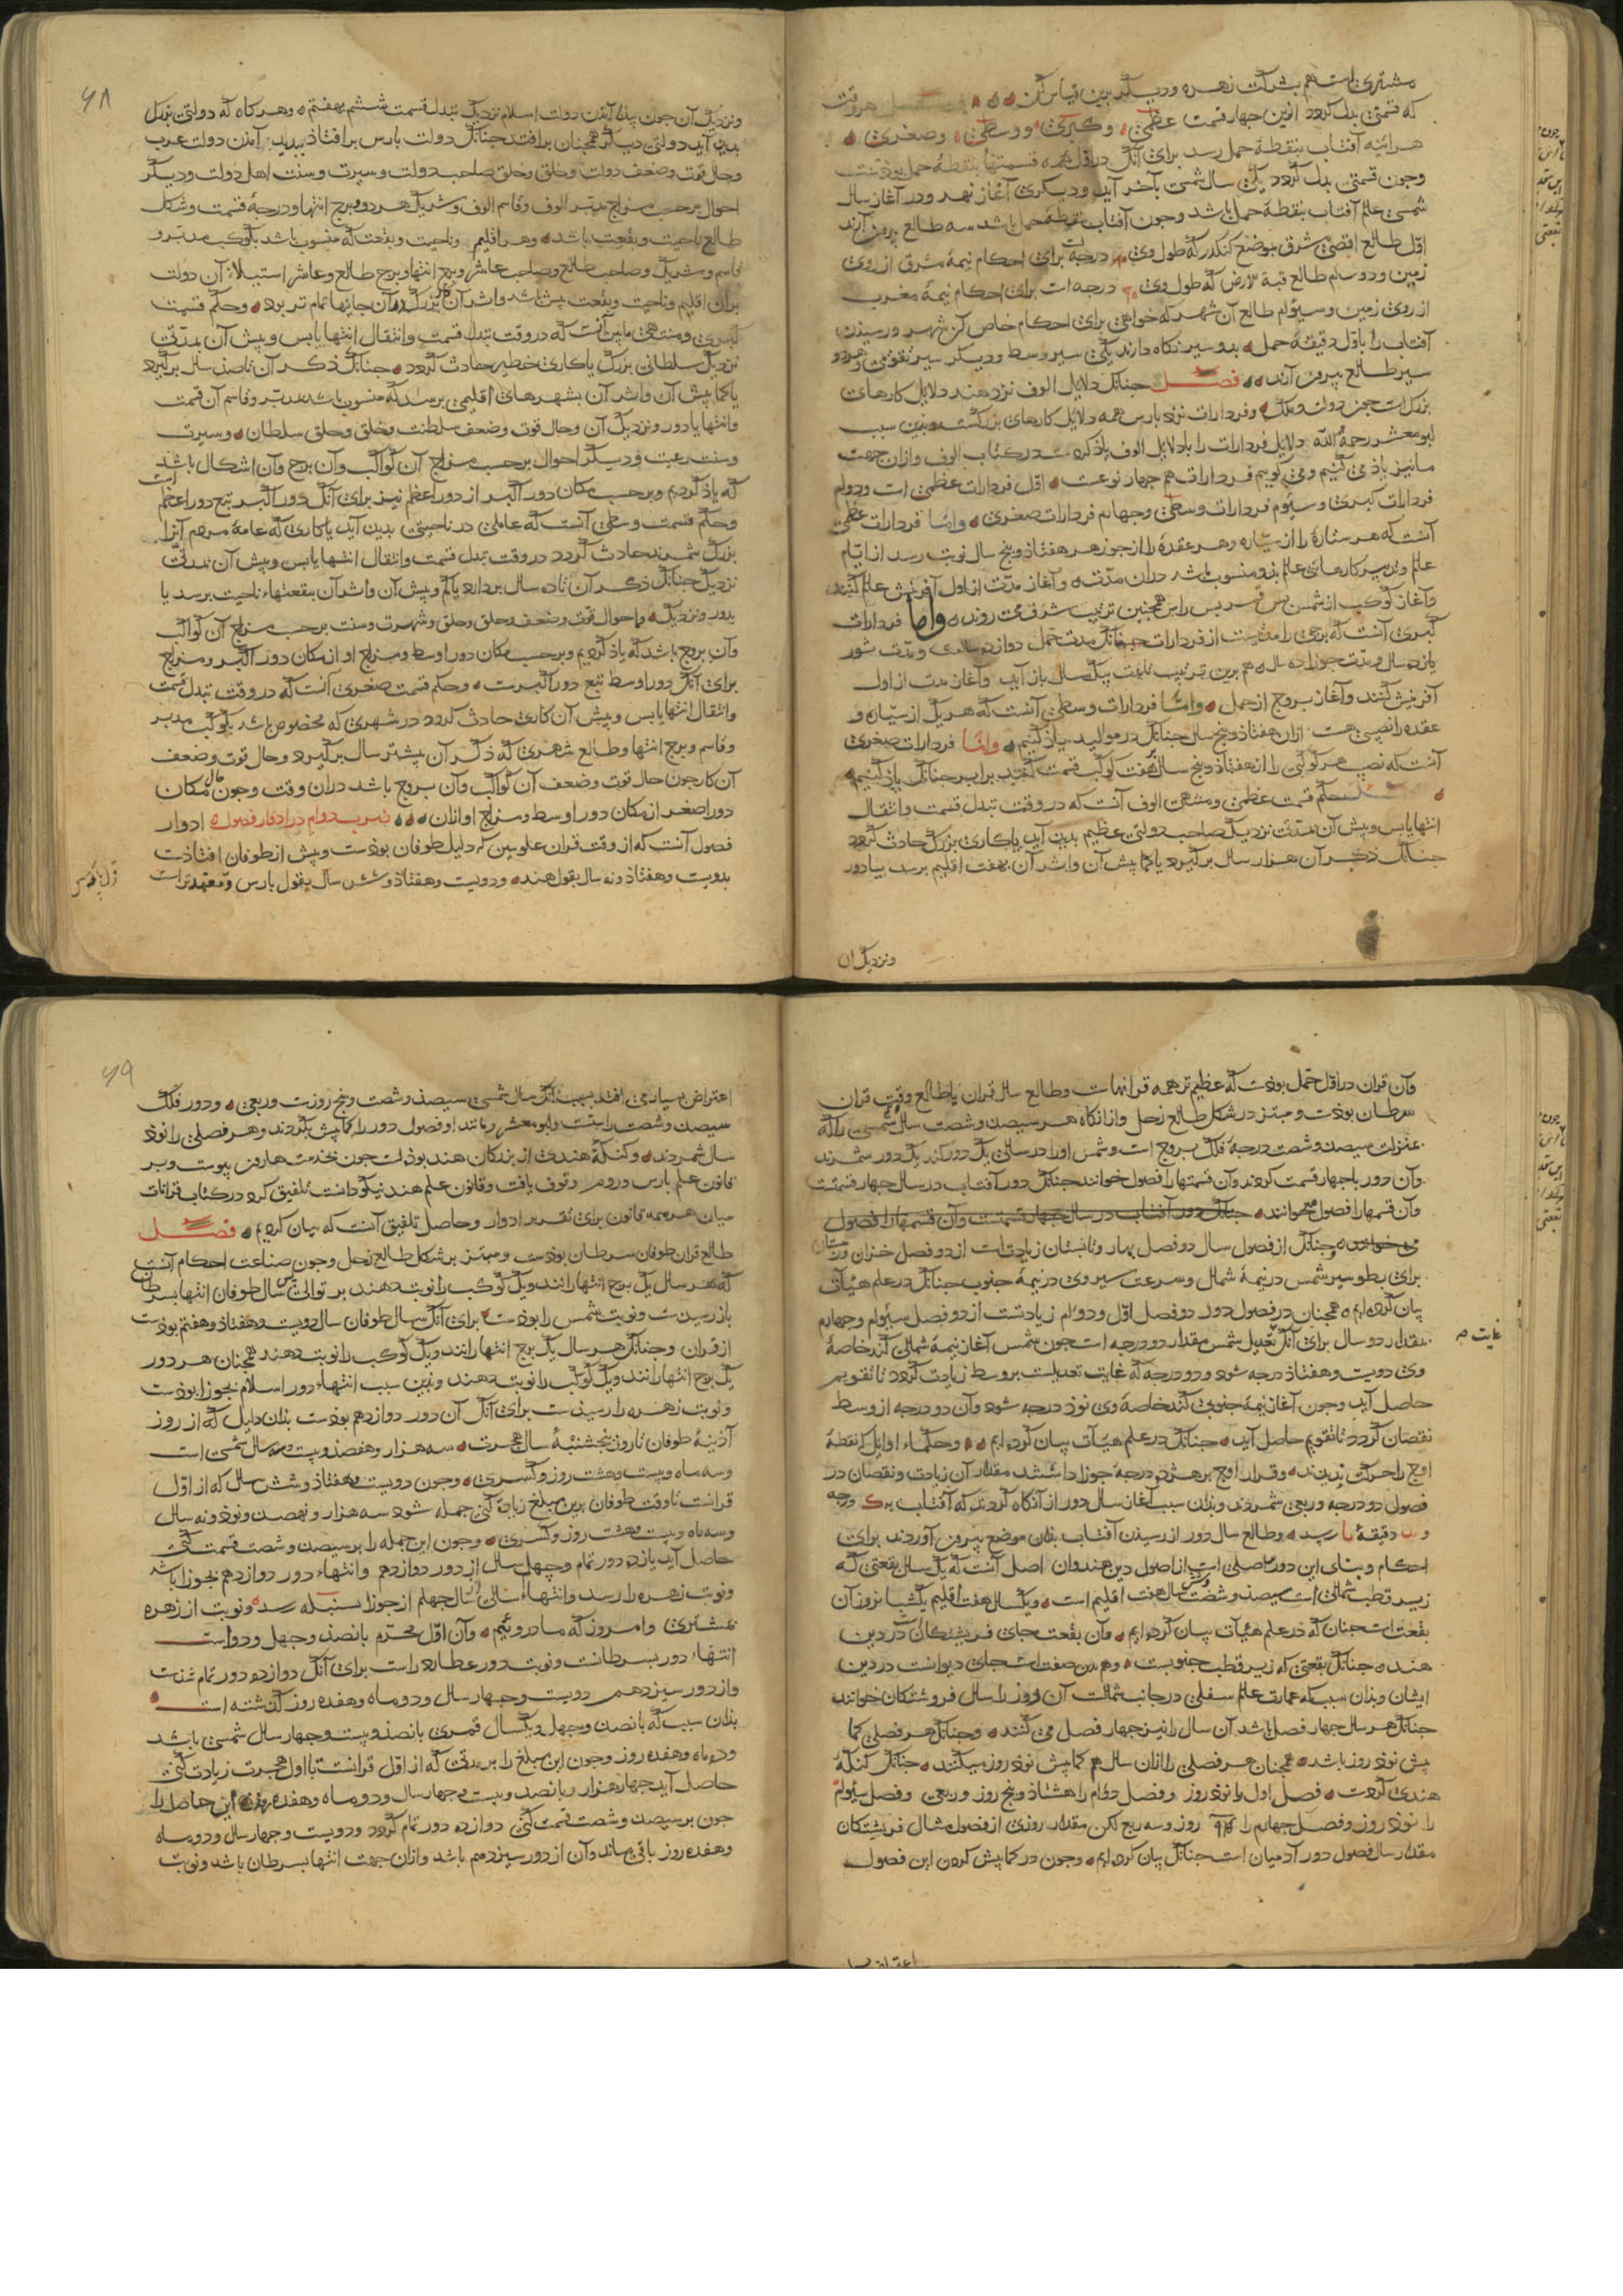 مشتری است هم بشرکت زهره ودیگر برین قیاس کن هروقت
که قسمتی بدل کردد ازین جهار قسمت عظمی وکبری ووسطی وصغری
هرآینه آفتاب بنقطهٔ حمل رسد برای آنک در اول همه قسمتها بنقطهٔ حمل بوذست
وجون قسمتی بدل کردد یکی سال شمسی بآخر آید ودیکری آغاز نهد ودر آغاز سال
شمسی عالم آفتاب بنقطهٔ حمل باشد وجون آفتاب بنقطهٔ حمل باشد سه طالع بیرون آرند
اول طالع اقصی مشرق بموضع کنکدز که طول وی درجه است برای احکام نیمهٔ مشرق از روی
زمین ودوم طالع قبة الارض که طول وی درجه است برای احکام نیمهٔ مغرب
از روی زمین وسیوم طالع آن شهر که خواهی برای احکام خاص آن شهر ودر رسیذن
آفتاب را باول دقیقهٔ حمل بدو سیر نکاه دارند یکی سیر وسط ودیکر سیر تقویمی وهر دو
سیر طالع بیرون آرند فصل جنانک دلایل الوف نزد هند دلایل کارهای
بزرک است جون دولت وملک وفردارات نزد بارس همه دلایل کارهای بزرکست وبذین سبب
ابومعشر رحمه الله دلایل فردارات را با دلایل الوف یاذ کرده است در کتاب الوف وازان جهت
ما نیز یاذ می کنیم ومی کوییم فردارات هم جهار نوعست اول فردارات عظمی است ودوم
فردارات کبری وسیوم فردارات وسطی وجهارم فردارات صغری واما فردارات عظمی
آنست که هر ستارهٔ را از سیاره وهر عقدهٔ را از جوزهر هفتاذ وبنج سال نوبت رسد از ایام
عالم وتدبیر کارهای عالم بذو منسوب باشد دران مدت وآغاز مدت از اول آفرینش عالم کنند
وآغاز کوکب از شمس بس قمر بس راس همجنین ترتیب شرف می روند واما فردارات
کبری آنست که برجی را مدتیست از فردارات جنانک مدت حمل دوازده سال ومدت ثور
یازده سال ومدت جوزا ده سال هم برین ترتیب تا حوت یک سال باز آید وآغاز مدت از اول
آفرینش کنند وآغاز بروج از حمل واما فردارات وسطی آنست که هر یک از سیاره و
عقده را نصیبی هست ازان هفتاذ وبنج سال جنانک در موالید یاذ کنیم واما فردارات صغری
آنست که نصیب هر کوکبی را از هفتاذ وبنج سال هفت کوکب قسمت کنند برابر جنانک یاذ کنیم
فصل حکم قسمت عظمی ومنتهی الوف آنست که در وقت تبدل قسمت وانتقال
انتها یا بس وبیش آن بمدت نزدیک صاحب دولتی عظیم بدید آید یا کاری بزرک حادث کردد
جنانک ذکر آن هزار سال برکیرد یا کمابیش آن واثر آن بهفت اقلیم برسد یا دور
ونزدیک ان
۶۸
ونزدیک آن جون پیدا آمدن دولت اسلام نزدیک تبدل قسمت ششم بهفتم وهر کاه که دولتی بزرک
بدید آید دولتی دیکر همجنان برافتد جنانک دولت بارس برافتاذ ببدید آمدن دولت عرب
وحال قوت وضعف دولت وخلق وخلق صاحب دولت وسیرت وسنت اهل دولت ودیکر
احوال برحسب مزاج مدبر الوف وقاسم الوف وشریک هر دو وبرج انتها ودرجهٔ قسمت وشکل
طالع ناحیت وبقعت باشد وهر اقلیم وناحیت وبقعت که منسوب باشد بکوکب مدبر و
قاسم وشریک وصاحب طالع وصاحب عاشر وبرج انتها وبرج طالع وعاشر استیلا آن دولت
بران اقلیم وناحیت وبقعت بیش باشد واثر آن کار بزرک دران جایها تمام تر بود وحکم قسمت
کبری ومنتهی مایین آنست که در وقت تبدل قسمت وانتقال انتها یا بس وبیش آن بمدتی
نزدیک سلطانی بزرک یا کاری خطیر حادث کردد جنانک ذکر آن تا صذ سال برکیرد
یا کمابیش آن واثر آن بشهرهای اقلیمی برسد که منسوب باشد بمدبر وقاسم آن قسمت
وانتها یا دور ونزدیک آن وحال قوت وضعف سلطنت وخلق وخلق سلطان وسیرت
وسنت رعیت ودیکر احوال برحسب مزاج آن کواکب وآن برج وآن اشکال باشد
که یاذ کردیم وبرحسب مکان دور اکبر از دور اعظم نیز برای آنک دور اکبر تبع دور اعظم است
وحکم قسمت وسطی آنست که عاملی در ناحیتی بدید آید یا کاری که عامهٔ مردم آنرا
بزرک شمرند حادث کردد در وقت تبدل قسمت وانتقال انتها یا بس وبیش آن بمدتی
نزدیک جنانک ذکر آن تا ده سال بردارد یا کم وبیش آن واثر آن ببقعتهاء ناحیت برسد یا
بدور ونزدیک واحوال قوت وضعف وخلق وخلق وشهرت وسنت برحسب مزاج آن کواکب
وآن بروج باشد که یاذ کردیم وبرحسب مکان دور اوسط ومزاج او از مکان دور اکبر ومزاج
برای آنک دور اوسط تبع دور اکبرست وحکم قسمت صغری آنست که در وقت تبدل قسمت
وانتقال انتها یا بس وبیش آن کاری حادث کردد در شهری که مخصوص باشد بکوکب مدبر
وقاسم وبرج انتها وطالع شهری که ذکر آن بیشتر سال برکیرد وحال قوت وضعف
آن کار جون حال قوت وضعف آن کواکب وآن بروج باشد دران وقت وجون حال مکان
دور اصغر از مکان دور اوسط ومزاج او ازان ضرب دوم در ادوار فصول ادوار
فصول آنست که از وقت قران علویین که دلیل طوفان بوذست وبیش از طوفان افتاذست
بدویست وهفتاذ ونه سال بقول هند ودویست وهفتاذ وشش سال بقول بارس ومعتمدتر است
وآن قران در اول حمل بوذست که عظیم‌تر همه قرانهاست وطالع سال قران یا طالع وقت قران
سرطان بوذست ومبتز در شکل طالع زحل وازانکاه هر سیصذ وشصت سال شمسی را که
بمنزلت سیصذ وشصت درجهٔ فلک بروج است وشمس اورا در سالی یک دور کند یک دور شمرند
وآن دور با جهار قسمت کردند وآن قسمتها را فصول خوانند جنانک دور آفتاب در سال جهار قسمتست
وآن قسمها را فصول میخوانند جنانک دور آفتاب در سال جهار قسمتست وآن قسمها را فصول
می خوانند وجنانک از فصول سال دو فصل بهار وتابستان زیادتست از دو فصل خزان وزمستان
برای بطو سیر شمس در نیمهٔ شمال وسرعت سیر وی در نیمهٔ جنوب جنانک در علم هیأت
بیان کرده ایم همجنان در فصول دور دو فصل اول ودوم زیادتست از دو فصل سیوم وجهارم
بمقدار دو سال برای آنک تعدیل شمس مقدار دو درجه است جون شمس آغاز نیمهٔ شمالی کند خاصهٔ
وی دویست وهفتاذ درجه شود ودو درجه که غایت تعدیلست بر وسط زیادت کردد تا تقویم
غایت صح
حاصل آید وجون آغاز نیمهٔ جنوبی کند خاصهٔ وی نوذ درجه شود وآن دو درجه از وسط
نقصان کردد تا تقویم حاصل آید جنانک در علم هیأت بیان کرده ایم وحکماء اوایل که نقطهٔ
اوج را حرکت ندیدند وقرار اوج بر هژده درجه جوزا داشتند مقدار آن زیادت ونقصان در
فصول دو درجه وربعی شمردند وبذان سبب آغاز سال دور از آنکاه کردند که آفتاب درجه
و دقیقهٔ رسید وطالع سال دور از رسیذن آفتاب بذان موضع بیرون آوردند برای
احکام وبنای این دور بر اصلی است از اصول دین هندوان اصل آنست که یک سال بقعتی که
زیر قطب شمالی است سیصذ وشصت سال هفت اقلیم است ویک سال هفت اقلیم یک شبانروز آن
بقعت است جنان که در علم هیأت بیان کرده ایم وآن بقعت جای فریشتکان است در دین
هند جنانک بقعتی که زیر قطب جنوبیست وهم بدین صفت است جای دیوانست در دین
ایشان وبذان سبب که عمارت عالم سفلی در جانب شمالست آن روز را سال فریشتکان خوانند
جنانک هر سال جهار فصل باشد آن سال را نیز جهار فصل می کنند وجنانک هر فصلی کما
بیش نوذ روز باشد همجنان هر فصلی را ازان سال هم کمابیش نوذ روز میکنند جنانک کنکهٔ
هندی کردست فصل اول را نوذ روز وفصل دوم را هشتاذ وبنج روز وربعی وفصل سیوم
را نوذ روز وفصل جهارم را روز وسه ربع لکن مقدار روزی از فصول سال فریشتکان
مقدار سال فصول دور آدمیان است جنانک بیان کرده ایم وجون در کمابیش کردن این فصول
۶۹
اعتراض بسیار می افتد بسبب آنک سال شمسی سیصذ وشصت وبنج روزست وربعی ودور فلک
سیصذ وشصت راستست وابومعشر ومانند او فصول دور را کمابیش نکردند وهر فصلی را نوذ
سال شمردند وکنکهٔ هندی از بزرکان هند بوذست جون خدمت هارون بیوست وبر
قانون علم بارس وروم وقوف یافت وقانون علم هند نیکو دانست تلفیق کرد در کتاب قرانات
میان هر سه قانون برای تقریر ادوار وحاصل تلفیق آنست که بیان کردیم فصل
طالع قران طوفان سرطان بوذست ومبتز بر شکل طالع زحل وجون صناعت احکام آنست
که هر سال یک برج انتها رانند ویک کوکب را نوبت دهند بر توالی بس سال طوفان انتها بسرطان
باز رسیدست ونوبت شمس را بوذست برای آنک سال طوفان سال دویست وهفتاذ وهفتم بوذست
از قران وجنانک هر سال یک برج انتها رانند ویک کوکب را نوبت دهند همجنان هر دور
یک برج انتها رانند ویک کوکب را نوبت دهند وبدین سبب انتهاء دور اسلام بجوزا بوذست
ونوبت زهره را رسیذست برای آنک آن دور دوازدهم بوذست بذان دلیل که از روز
آذینهٔ طوفان تا روز بنجشنبهٔ سال هجرت سه هزار وهفصذ وبیست وسه سال شمسی است
وسه ماه وبیست وهشت روز وکسری وجون دویست وهفتاذ وشش سال که از اول
قرانست تا وقت طوفان برین مبلغ زیادت کنی جمله شود سه هزار ونهصذ ونوذ ونه سال
وسه ماه وبیست وهشت روز وکسری وجون این جمله را بر سیصذ وشصت قسمت کنی
حاصل آید یازده دور تمام وجهل سال از دور دوازدهم وانتهاء دور دوازدهم بجوزا باشد
ونوبت زهره را رسد وانتهاء سالی سال جهلم از جوزا بسنبله رسد ونوبت از زهره
بمشتری وامروز که ما دروییم وآن اول محرم بانصذ وجهل ودواست
انتهاء دور بسرطانست ونوبت دور عطارد راست برای آنک دوازده دور تمام شدست
واز دور سیزدهم دویست وجهار سال ودو ماه وهفده روز کذشته است
بذان سبب که بانصذ وجهل ویک سال قمری بانصذ وبیست وجهار سال شمسی باشد
ودو ماه وهفده روز وجون این مبلغ را بر مدتی که از اول قرانست تا اول هجرت زیادت کنی
حاصل آید جهار هزار وبانصذ وبیست وجهار سال ودو ماه وهفده روز این حاصل را
جون بر سیصذ وشصت قسمت کنی دوازده دور تمام کردد ودویست وجهار سال ودو ماه
وهفده روز باقی بماند وآن از دور سیزدهم باشد وازان جهت انتها بسرطان باشد ونوبت